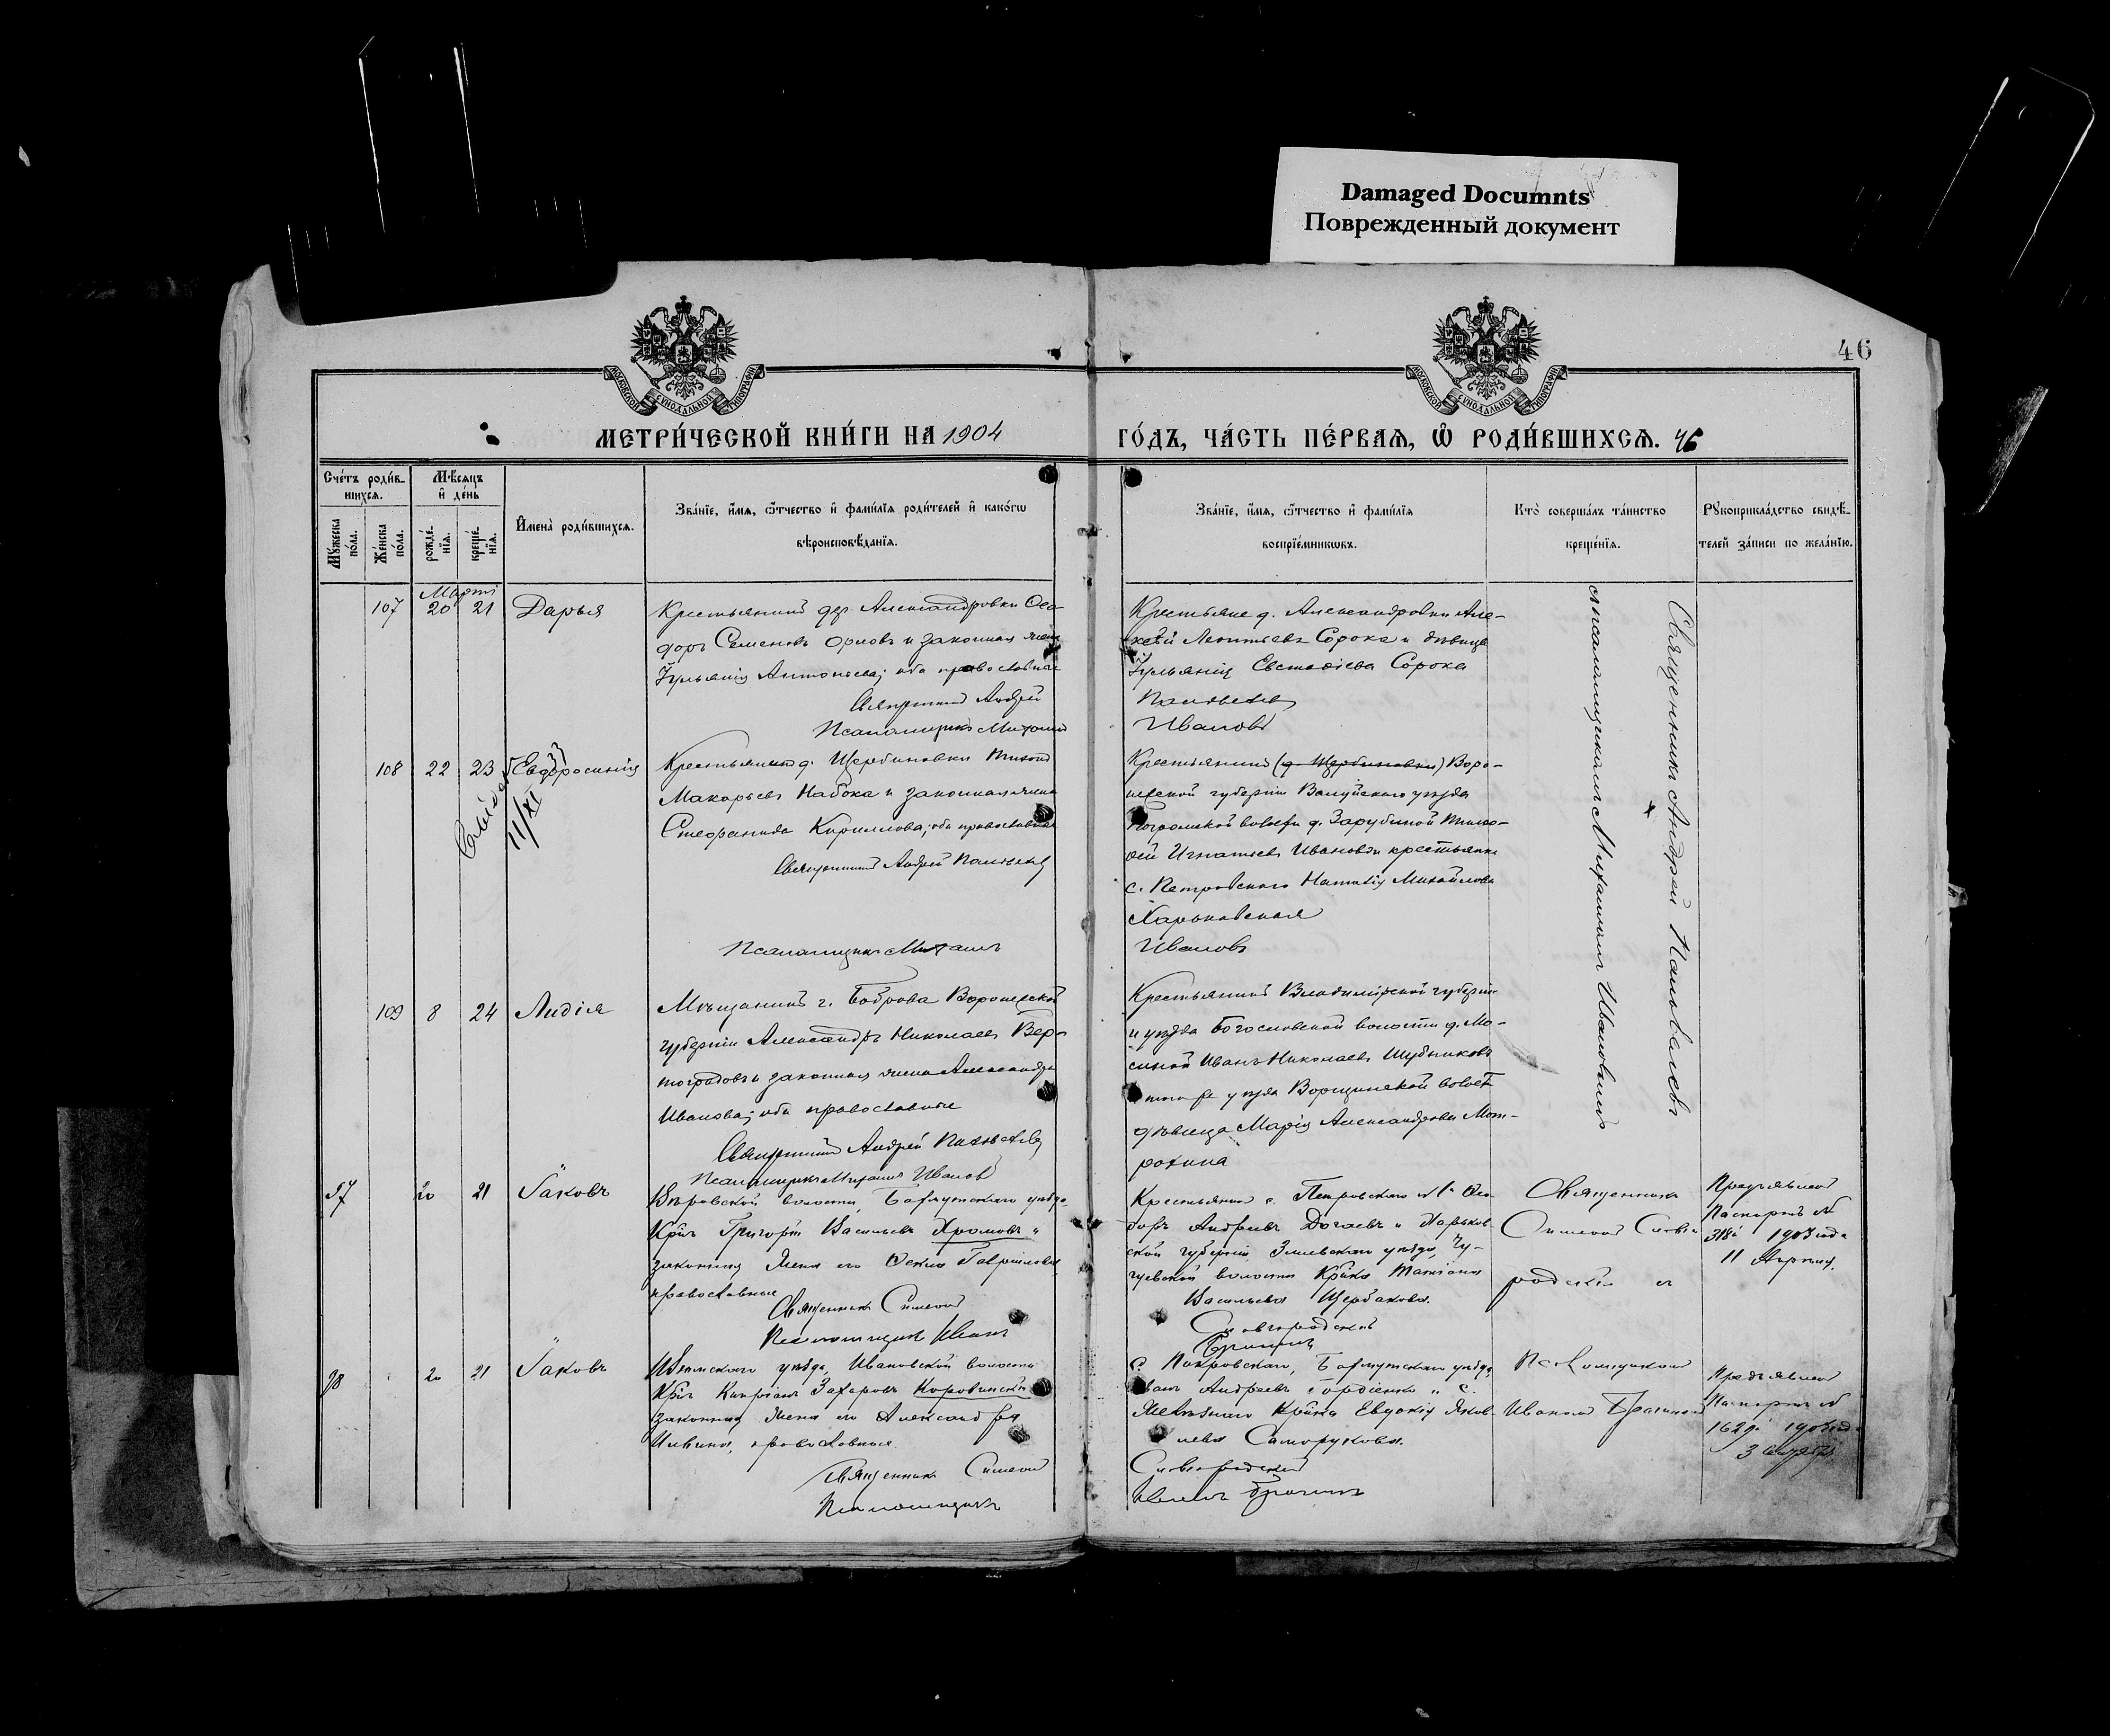 Damaged Documnts
Поврежденный документ
46
МЕТРИ́ЧЕСКОЙ КНИ́ГИ НА 1904
ГО́ДЪ, ЧА́СТЬ ПЕ́РВАѦ, Ѽ РОДИ́ВШИХСѦ. 46
Сче́тъ роди́в-
шихся.
Мѣ́сяцъ
и де́нь
Му́жеска по́ла.
Же́нска по́ла.
рожде́нїя.
креще́нїя.
Имена̀ роди́вшихся.
Зва́нїе, и́мя, ѻ҆́тчество и фами́лїя роди́телей и како́гѡ
вѣроисповѣ́данїя.
Зва́нїе, и́мя, ѻ҆́тчество и фами́лїя
воспрїе́мникѡвъ.
Кто̀ соверша́лъ та́инство
креще́нїя.
Рукоприкла́дство свидѣ́-
телей за́писи по жела́нїю.
Мартъ
107 20 21 Дарья
Крестьянинъ дер. Александровки Ѳео-
доръ Семеновъ Орловъ и законная жена
Іульянія Антоньева; оба православные
Священникъ Андрей
Псаломщикъ Михаилъ
Крестьяне д. Александровки Але-
ксѣй Леонтьевъ Сорока и дѣвица
Іульянія Евстафіева Сорока
Ивановъ
108 22 23 Евфросинія
11/XI 33
Крестьянинъ д. Щербиновки Тихонъ
Макарьевъ Набока и законная жена
Стефанида Кириллова; оба православные
Священникъ Андрей
Псаломщикъ Михаилъ
Крестьянинъ (д. Щербиновки) Воро-
нежской губерніи Валуйскаго уѣзда
Погромской волости д. Зарубиной Тимо-
ѳей Игнатьевъ Ивановъ и крестьянка
с. Петровскаго Наталія Михайлова
Харьковская
Ивановъ
Священникъ Андрей
съ псаломщикомъ Михаиломъ Ивановымъ
109 8 24 Лидія
Мѣщанинъ г. Боброва Воронежской
губерніи Александръ Николаевъ Вер-
тоградовъ и законная жена Александра
Иванова; оба православные
Священникъ Андрей
Псаломщикъ Михаилъ Ивановъ
Крестьянинъ Владимірской губерніи
и уѣзда Богословской волости д. Мо-
синой Иванъ Николаевъ Шубниковъ
и того же уѣзда Ворщинской волости
дѣвица Марія Александрова Мат-
рохина
97 20 21 Іаковъ
Вѣровской волости, Бахмутскаго уѣзда
Кр̃нъ Григорій Васильевъ Хромовъ и
законная жена его Ѳекла Гавріилова,
православные
Священникъ Симеонъ
Псаломщикъ Иванъ
Крестьянинъ с. Петровскаго № 1й Ѳео-
доръ Андреевъ Догаевъ и Харьков-
ской губерніи Зміевскаго уѣзда, Чу-
гуевской волости Кр̃нка Татіана
Васильева Щербакова.
Священникъ
Симеонъ
Предъявленъ
Паспортъ №
318й 1903 года
11 Апрѣля.
98 20 21 Іаковъ
уѣзда, Ивановской волости
Кр̃нъ Кипріанъ Захаровъ Коровинскій
законная жена его Александра
Ильина, православные.
Священникъ Симеонъ
Псаломщикъ
с. Покровскаго, Бахмутскаго уѣзда,
Иванъ Андреевъ Гордіенко и с.
Желѣзнаго Кр̃нка Евдокія Яков-
лева Саморукова.
Псаломщикомъ
Иваномъ
Предъявленъ
Паспортъ №